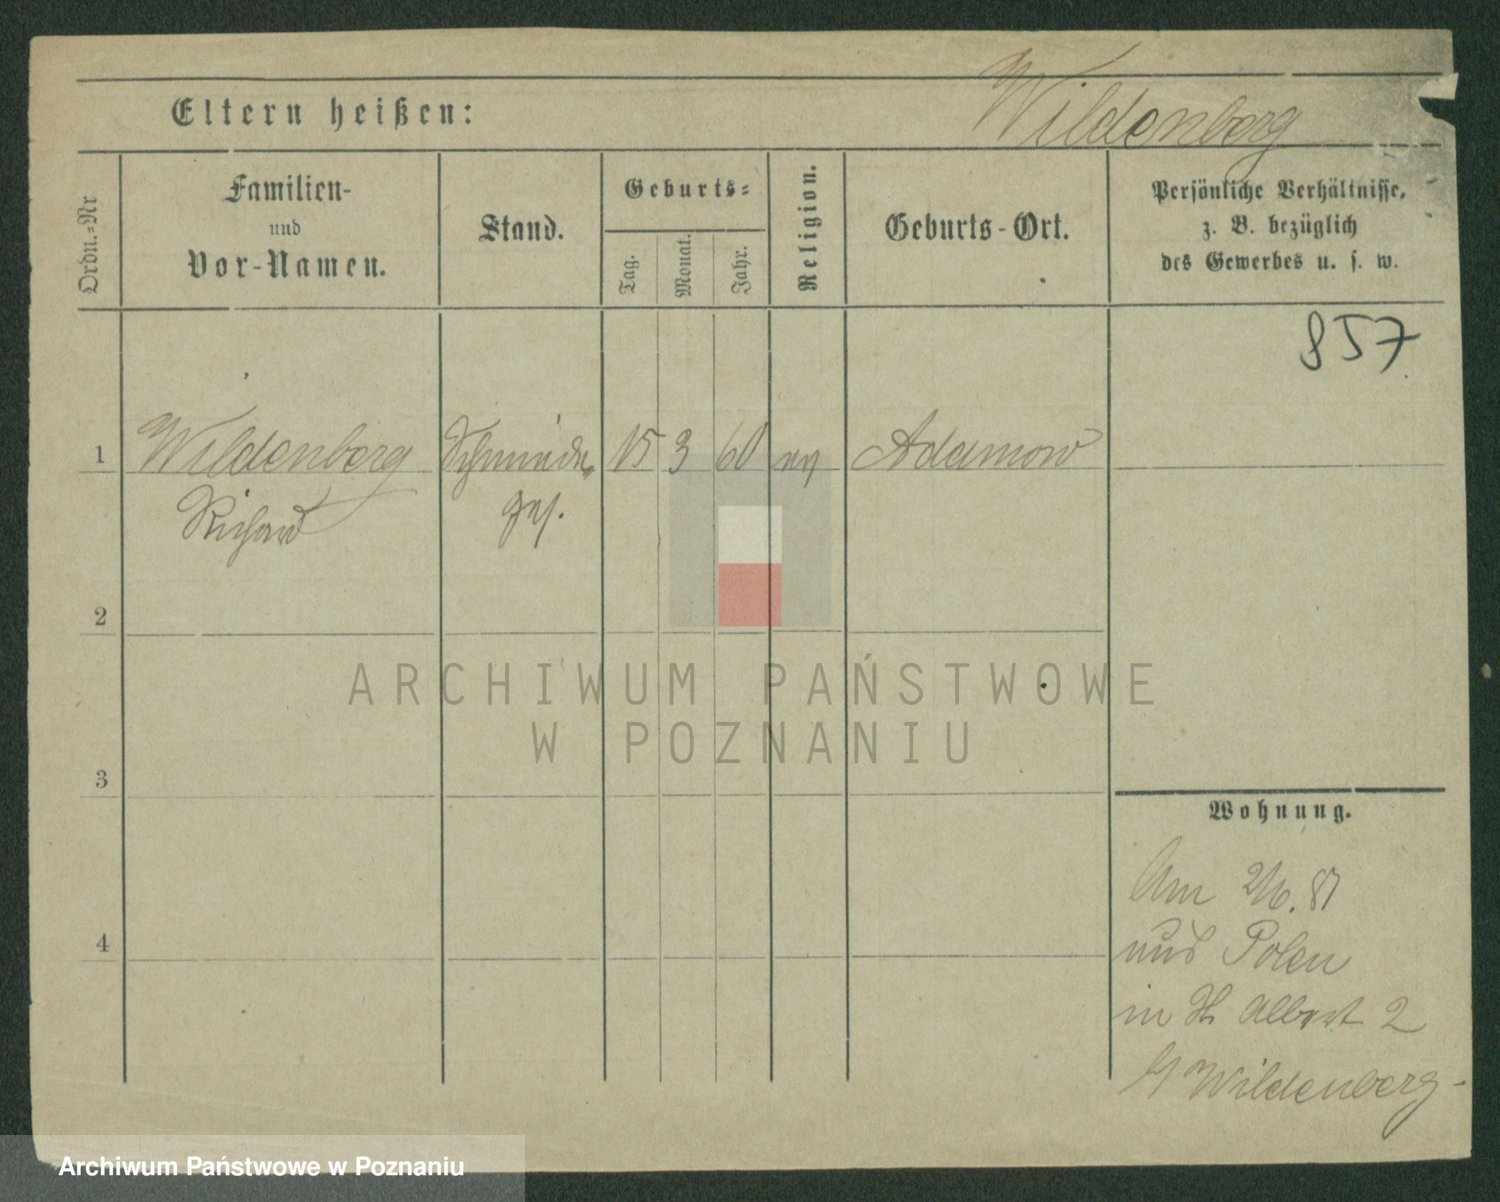 Wildenberg
Eltern heißen:
Ordn.=Nr
Familien-
und
Vor-Namen.
Stand.
Geburts=
Tag.
Monat.
Jahr.
Religion.
Geburts-Ort.
Persönliche Verhältnisse,
z. B. bezüglich
des Gewerbes u. s. w.
857
1
Wildenberg
Richard
Schmiede=
ges.
15
3
60
ev
Adamow
2
3
4
Wohnung.
Am 2/6. 81
aus Polen
in St Albert 2
Wildenberg.
ARCHIWUM PAŃSTWOWE
W POZNANIU
Archiwum Państwowe w Poznaniu